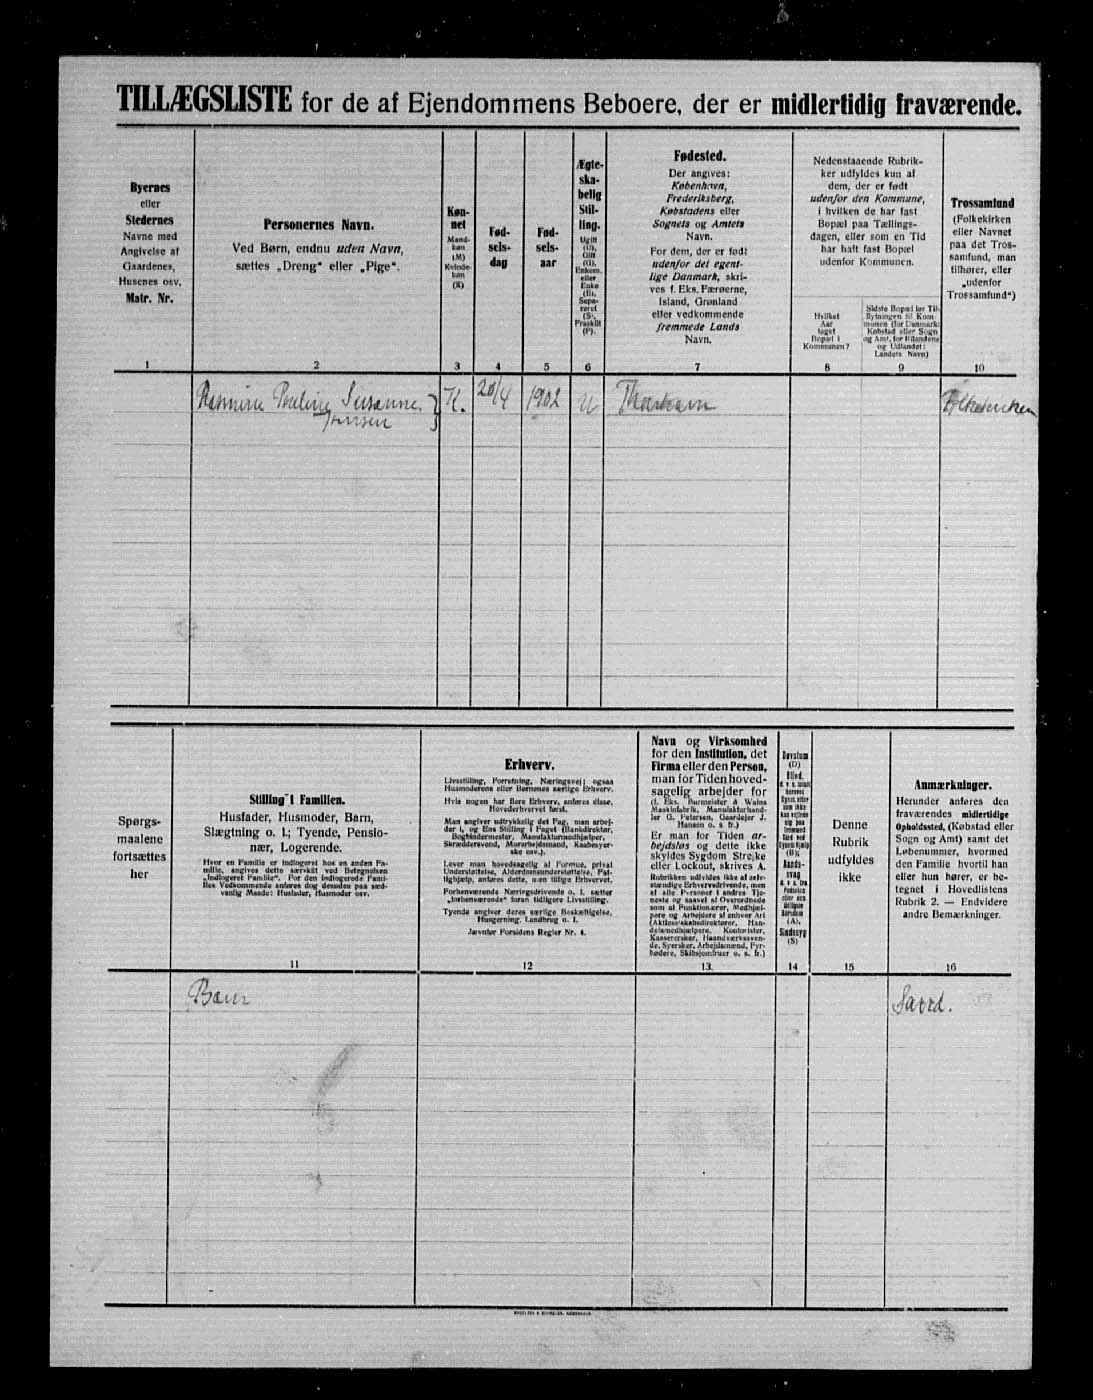 TILLÆGSLISTE for de af Ejendommens Beboere, der er midlertidig fraværende.
Byernes
eller
Stedernes
Navne med
Angivelse af
Gaardenes,
Husenes osv.
Matr. Nr.
1
Personernes Navn.
Ved Børn, endnu uden Navn,
sættes „Dreng“ eller „Pige“.
2
Køn-
net
Mand-
køn
(M)
Kvinde-
køn
(K)
3
Fød-
sels-
dag
4
Fød-
sels-
aar
5
Ægte-
ska-
belig
Stil-
ling.
Ugift
(U),
Gift
(G),
Enkem.
eller
Enke
(E),
Sepa-
reret
(S),
Fraskilt
(F).
6
Fødested.
Der angives:
København,
Frederiksberg,
Købstadens eller
Sognets og Amtets
Navn.
For dem, der er født
udenfor det egent-
lige Danmark, skri-
ves f. Eks. Færøerne,
Island, Grønland
eller vedkommende
fremmede Lands
Navn.
7
Nedenstaaende Rubrik-
ker udfyldes kun af
dem, der er født
udenfor den Kommune,
i hvilken de har fast
Bopæl paa Tællings-
dagen, eller som en Tid
har haft fast Bopæl
udenfor Kommunen.
Hvilket
Aar
taget
Bopæl i
Kommunen?
8
Sidste Bopæl før Til-
flytningen til Kom-
munen (for Danmark:
Købstad eller Sogn
og Amt, for Bilandene
og Udlandet:
Landets Navn)
9
Trossamfund
(Folkekirken
eller Navnet
paa det Tros-
samfund, man
tilhører, eller
„udenfor
Trossamfund“)
10
Rasmine Pauline Susanne
Jensen
K.
20/4
1902
U
Folkekirken
Spørgs-
maalene
fortsættes
her
Stilling i Familien.
Husfader, Husmoder, Barn,
Slægtning o. l.; Tyende, Pensio-
nær, Logerende.
Hvor en Familie er indlogeret hos en anden Fa-
milie, angives dette særskilt ved Betegnelsen
„Indlogeret Familie“. For den indlogerede Fami-
lies Vedkommende anføres dog desuden paa sæd-
vanlig Maade: Husfader, Husmoder osv.
11
Erhverv.
Livsstilling, Forretning, Næringsvej; ogsaa
Husmoderens eller Børnenes særlige Erhverv.
Hvis nogen har flere Erhverv, anføres disse,
Hovederhvervet først.
Man angiver udtrykkelig det Fag, man arbej-
der i, og Ens Stilling i Faget (Bankdirektør,
Bogbindermester, Manufakturmedhjælper,
Skræddersvend, Murarbejdsmand, Kasserer-
ske osv.).
Lever man hovedsagelig af Formue, privat
Understøttelse, Alderdomsunderstøttelse, Fat-
tighjælp, anføres dette, men tillige Erhvervet.
Forhenværende Næringsdrivende o. l. sætter
„forhenværende“ foran tidligere Livsstilling.
Tyende angiver deres særlige Beskæftigelse,
Husgerning, Landbrug o. l.
Jævnfør Forsidens Regler Nr. 4.
12
Navn og Virksomhed
for den Institution, det
Firma eller den Person,
man for Tiden hoved-
sagelig arbejder for
(f. Eks. Burmeister & Wains
Maskinfabrik, Manufakturhand-
ler G. Petersen, Gaardejer J.
Hansen o. s. fr.)
Er man for Tiden ar-
bejdsløs og dette ikke
skyldes Sygdom Strejke
eller Lockout, skrives A.
Rubrikken udfyldes ikke af selv-
stændige Erhvervsdrivende, men
af alle Personer i andres Tje-
neste og saavel af Overordnede
som af Funktionærer, Medhjæl-
pere og Arbejdere af enhver Art
(Aktieselskabsdirektører, Han-
delsmedhjælpere, Kontorister,
Kassererster, Haandværkssven-
de, Syersker, Arbejdsmænd, Fyr-
bødere, Skibsjomfruer o. s. fr.)
13.
Døvstum
(D)
Blind,
14
Denne
Rubrik
udfyldes
ikke
15
Anmærkninger.
Herunder anføres den
fraværendes midlertidige
Opholdssted, (Købstad eller
Sogn og Amt) samt det
Løbenummer, hvormed
den Familie hvortil han
eller hun hører, er be-
tegnet i Hovedlistens
Rubrik 2. — Endvidere
andre Bemærkninger.
16
Barn